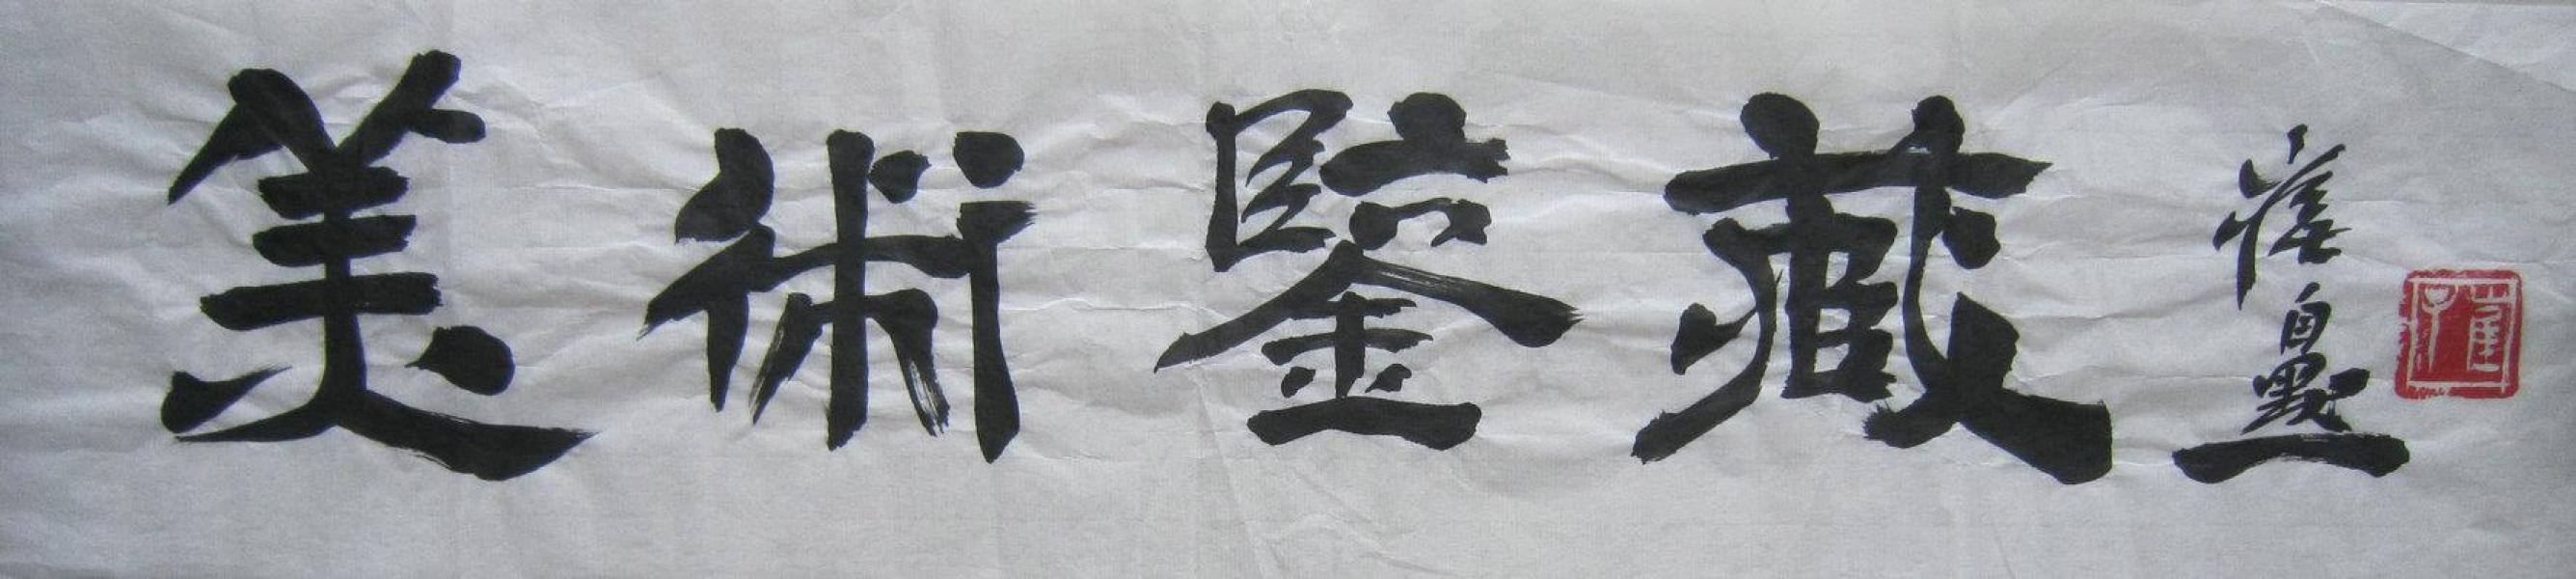 美術鑒藏
崔自默